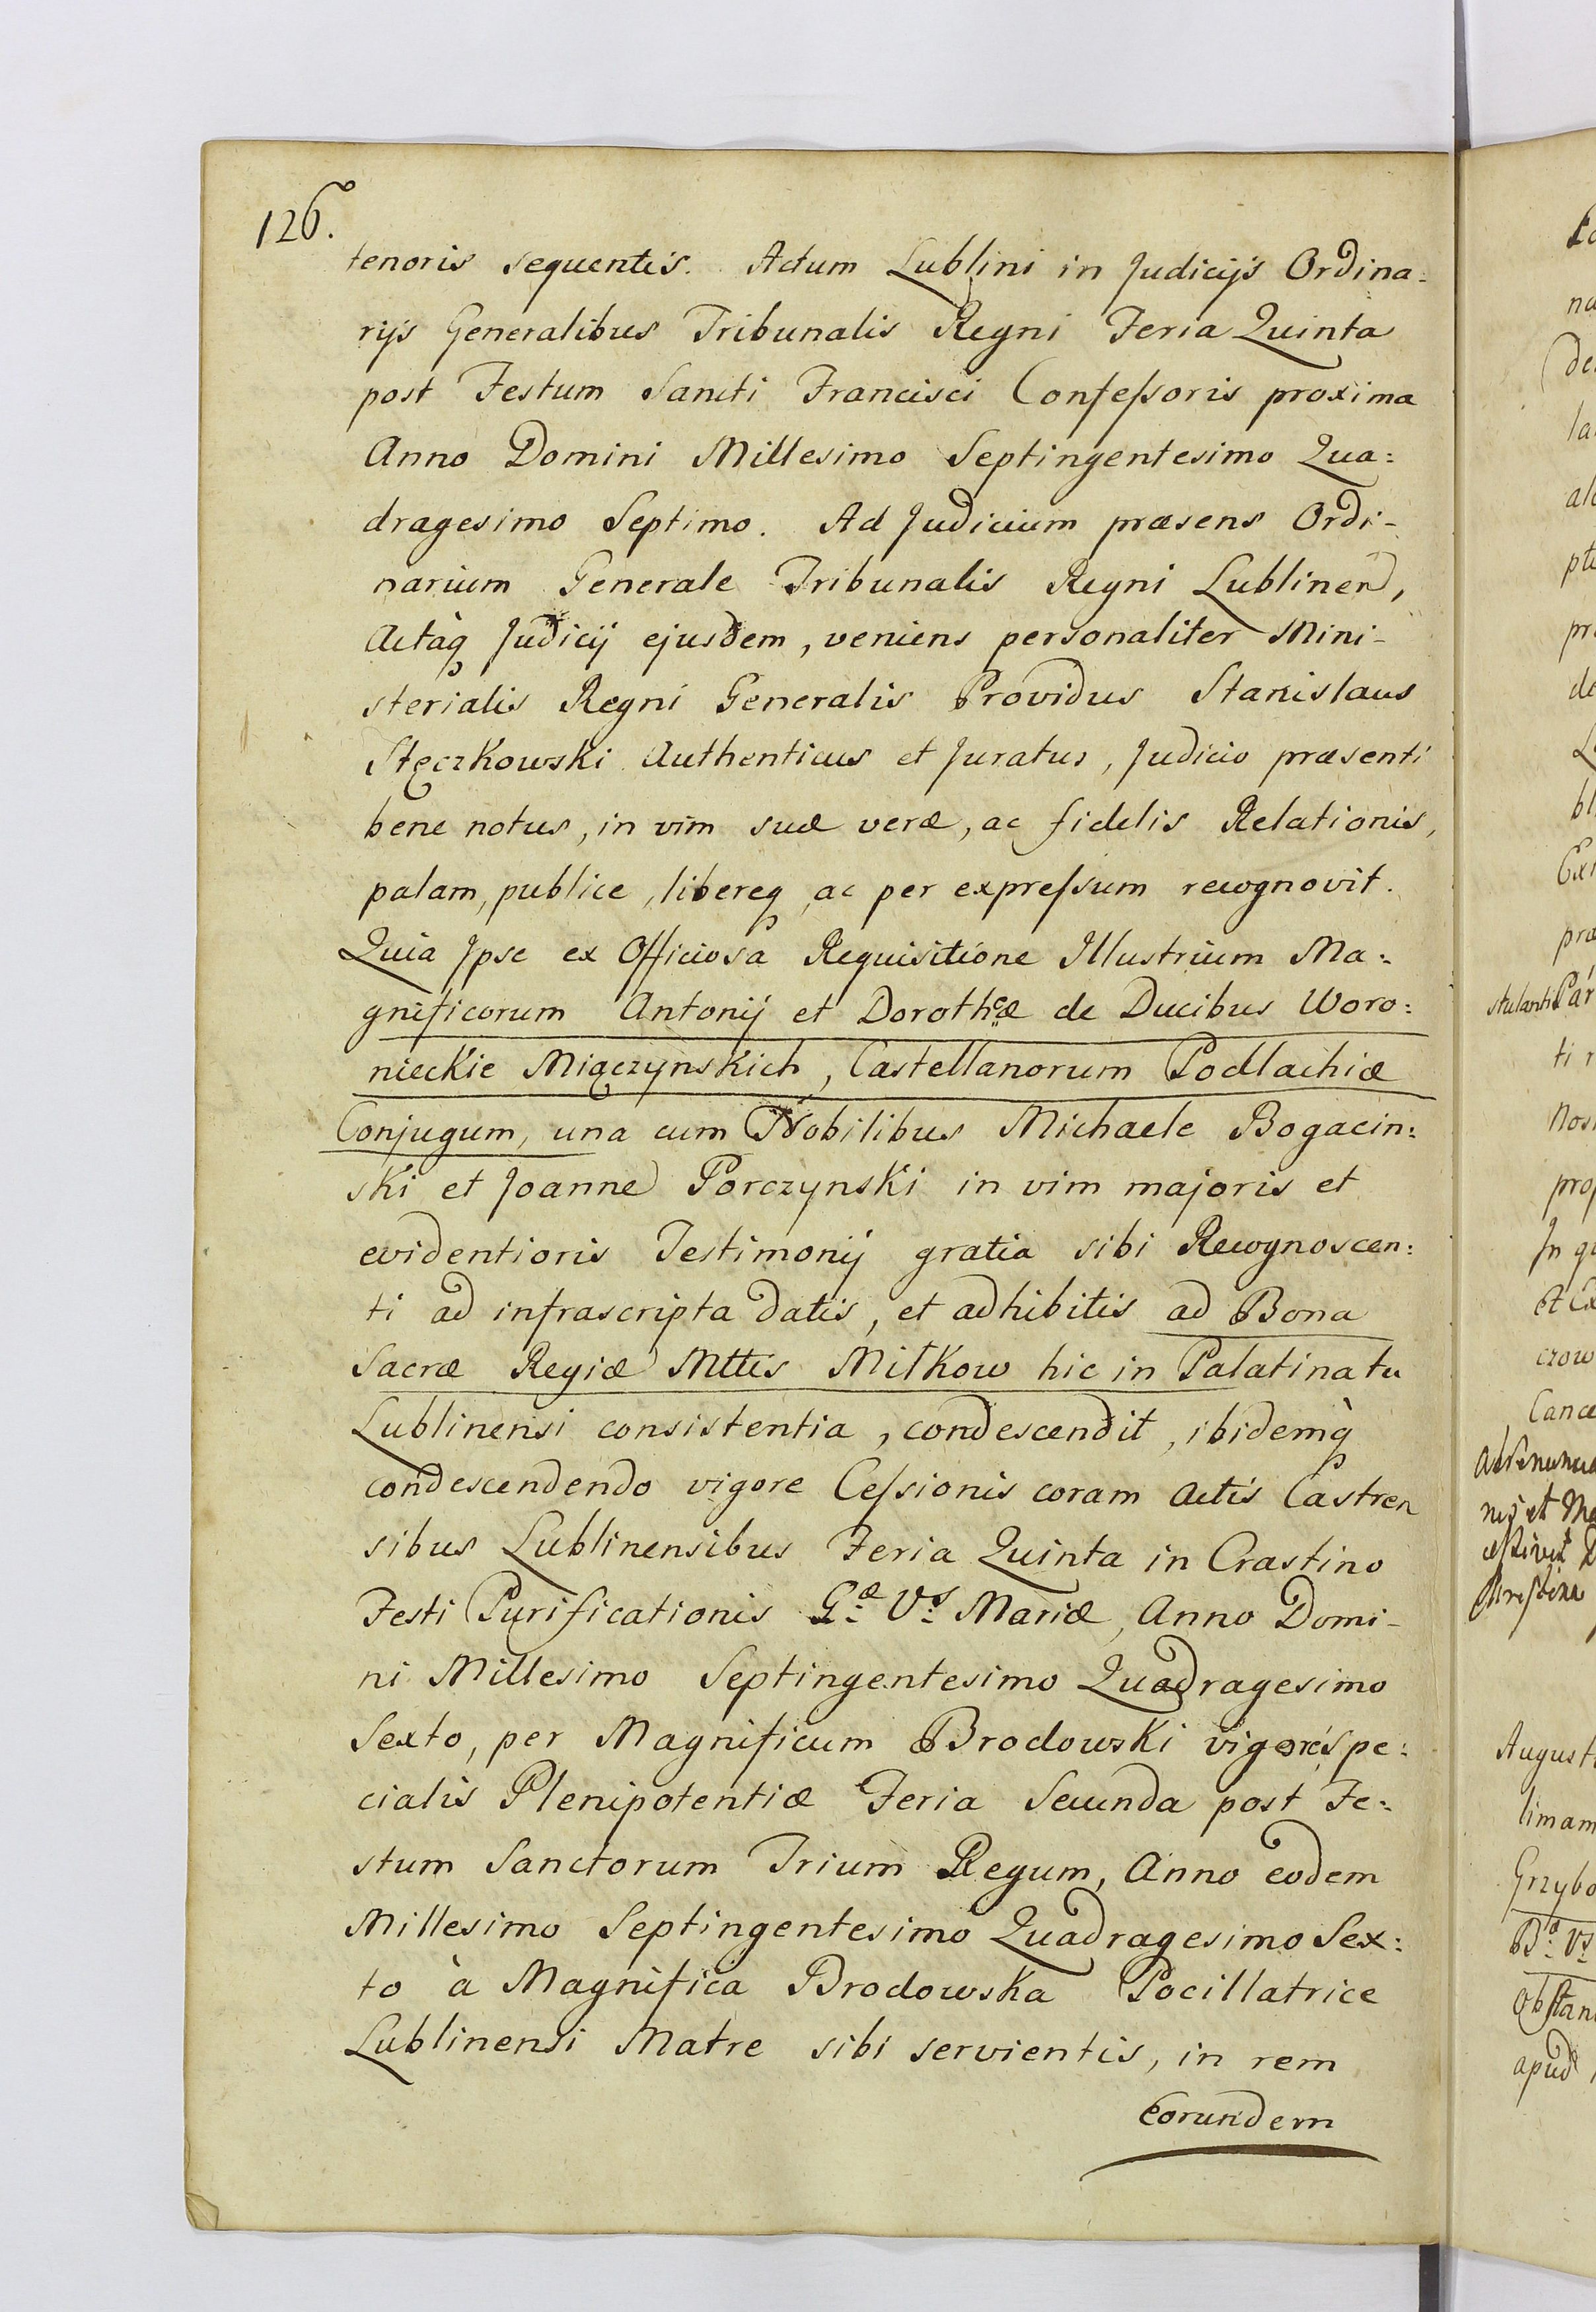 126.
tenoris sequentis. Actum Lublini in Judicijs Ordina-
rijs Generalibus Tribunalis Regni Feria Quinta
post Festum Sancti Francisci Confeſsoris proxima
Anno Domini Millesimo Septingentesimo Qua:
dragesimo Septimo. Ad Judicium præsens Ordi-
narium Generale Tribunalis Regni Lublinen,
Actàq Judicij ejusdem, veniens personaliter Mini-
sterialis Regni Generalis Providus Stanislaus
Stęczkowski Authenticus et Juratus, Judicio præsenti
bene notus, in vim suæ veræ, ac fidelis Relationis,
palam, publice, libereq, ac per expreſsum recognovit.
Quia Ipse ex Officiosa Requisitione Illustrium Ma:
gnificorum Antonij et Dorotheæ de Ducibus Woro:
nieckie Miączynskich, Castellanorum Podlachiæ
Conjugum, una cum Nobilibus Michaele Bogacin:
ski et Joanne Porczynski in vim majoris et
evidentioris Testimonij gratia sibi Recognoscen:
ti ad infrascripta datis, et adhibitis ad Bona
Sacræ Regiæ Mttis Miłkow hic in Palatinatu
Lublinensi consistentia, condescendit, ibidemq̀
condescendendo vigore Ceſsionis coram Actis Castren
sibus Lublinensibus Feria Quinta in Crastino
Festi Purificationis Gæ Vs Mariæ, Anno Domi-
ni Millesimo Septingentesimo Quadragesimo
Sexto, per Magnificum Brodowski vigore spe:
cialis Plenipotentiæ Feria Secunda post Fe:
stum Sanctorum Trium Regum, Anno eodem
Millesimo Septingentesimo Quadragesimo Sex:
to à Magnifica Brodowska Pocillatrice
Lublinensi Matre sibi servientis, in rem
Eorundem